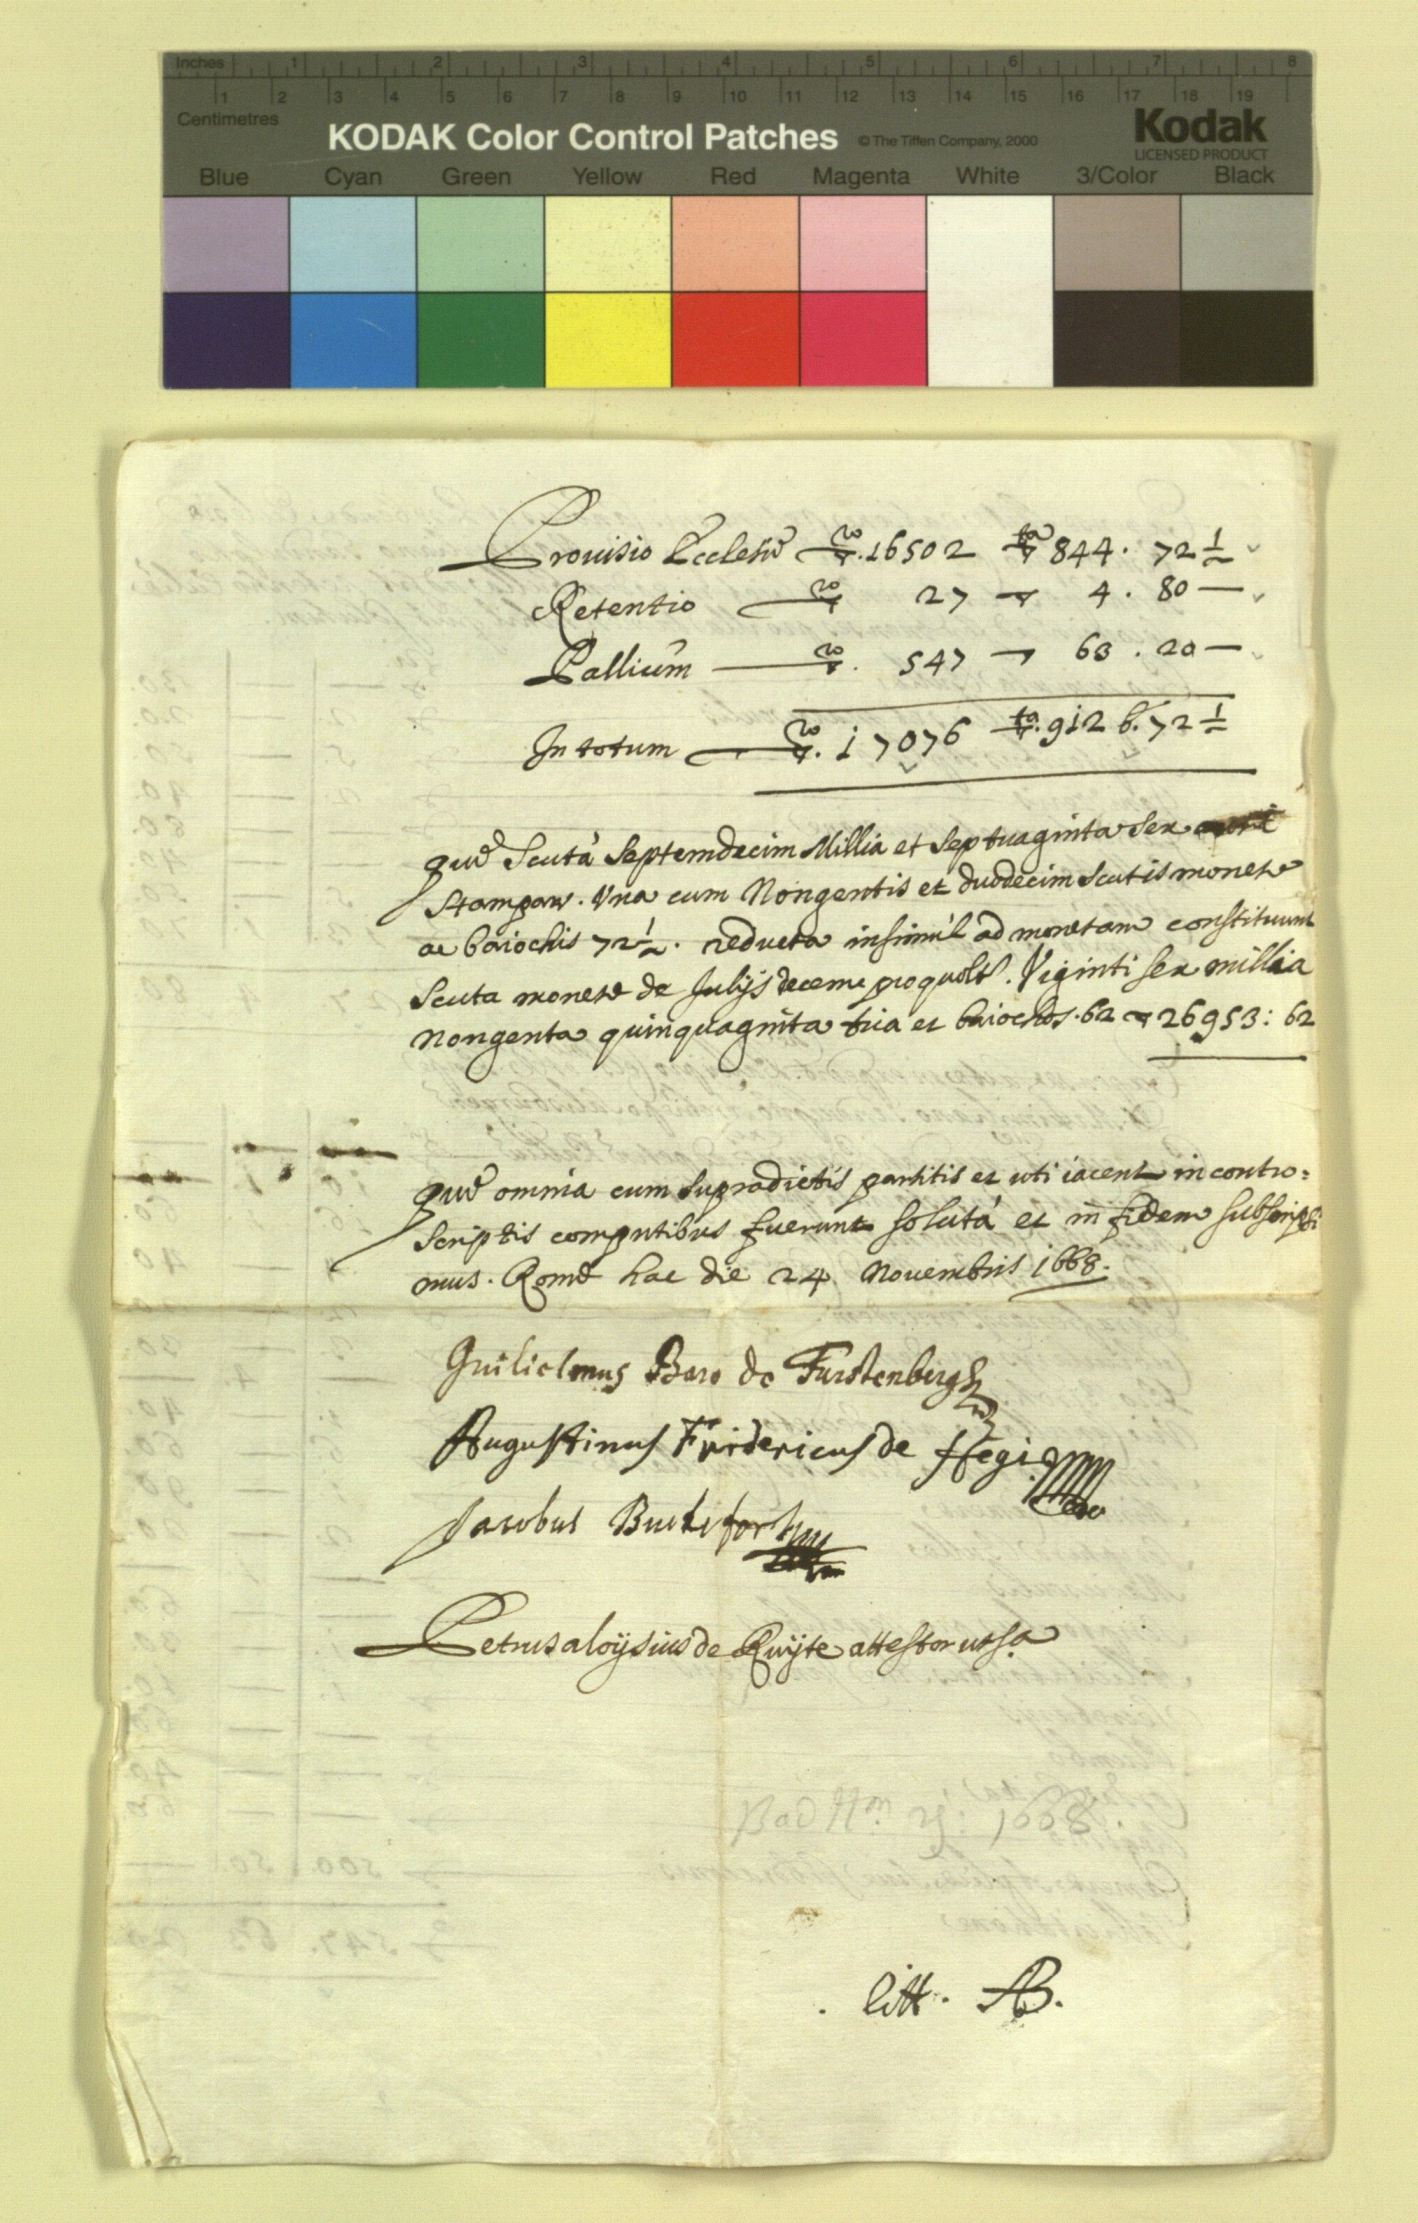 Inches 1 2 3 4 5 6 7 8
1 2 3 4 5 6 7 8 9 10 11 12 13 14 15 16 17 18 19
Centimetres
KODAK Color Control Patches © The Tiffen Company, 2000 Kodak
LICENSED PRODUCT
Blue Cyan Green Yellow Red Magenta White 3/Color Black
Prouisio Ecclesiæ 16502 844. 72 1/2
Retentio 27 4. 80 —
Pallium 547 63. 20 —
In totum 17076 912 b. 72 1/2
quæ Scuta Septemdecim Millia et Septuaginta Sex
Stampar. Vna cum Nongentis et duodecim Scutis monetæ
ac baiochis 72 1/2. reducta insimul ad monetam constituunt
Scuta monetæ de Julijs decem pro quolt. Viginti sex millia
Nongenta quinquaginta tria et baiochos. 62 26953: 62
quæ omnia cum supradictis partitis et uti iacent in contro=
scriptis computibus fuerunt soluta et in fidem subscripsi
mus. Romæ hac die 24 Nouembris 1668.
Guilielmus Baro de Furstenbergh
Augustinus Fridericus de Hegi
Jacobus
Petrus aloysius de Ruyte attestor ut sa
1668.
litt. AB.